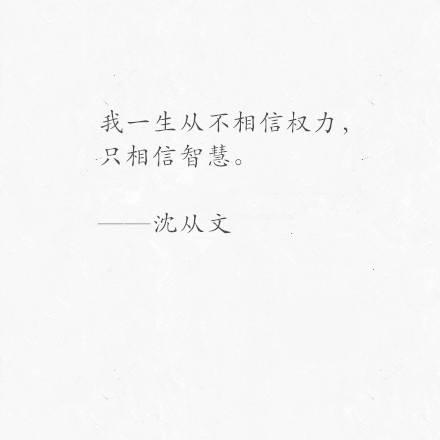 我一生从不相信权力，
只相信智慧。
——沈从文